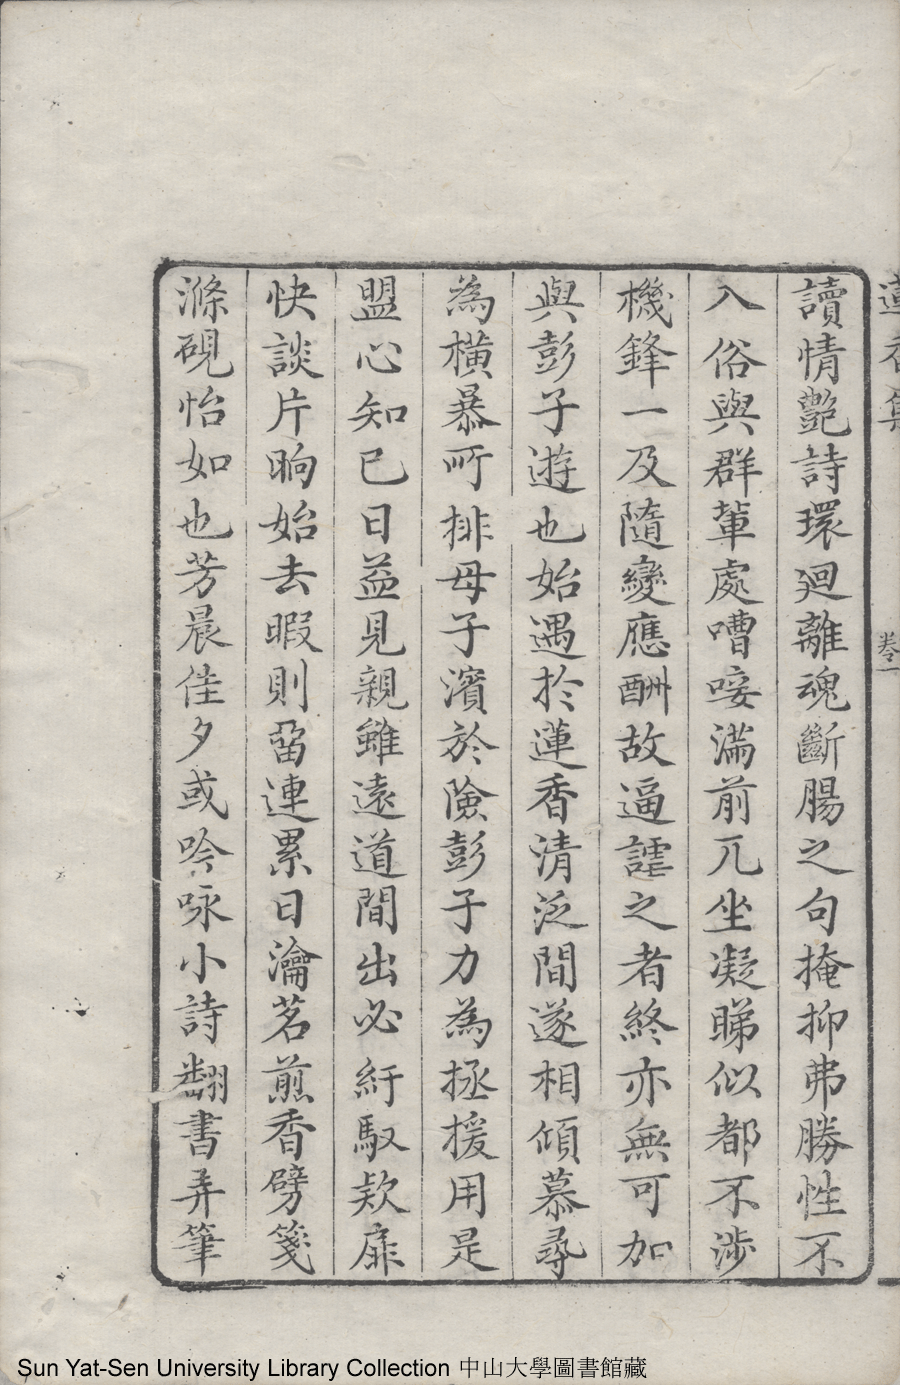 蓮香集
卷一
讀情艷詩環廻離魂斷腸之句掩抑弗勝性不
入俗與群軰處嘈唼滿前兀坐凝睇似都不涉
機鋒一及隨變應酬故逼謔之者終亦無可加
與彭子遊也始遇扵蓮香清泛間遂相傾慕尋
為橫暴所排母子濱於險彭子力為拯援用是
盟心知已日益見親雖遠道間出必紆馭欵扉
快談片晌始去暇則畱連累日瀹茗煎香劈箋
滌硯怡如也芳晨佳夕或吟咏小詩翻書弄筆
Sun Yat-Sen University Library Collection 中山大學圖書館藏